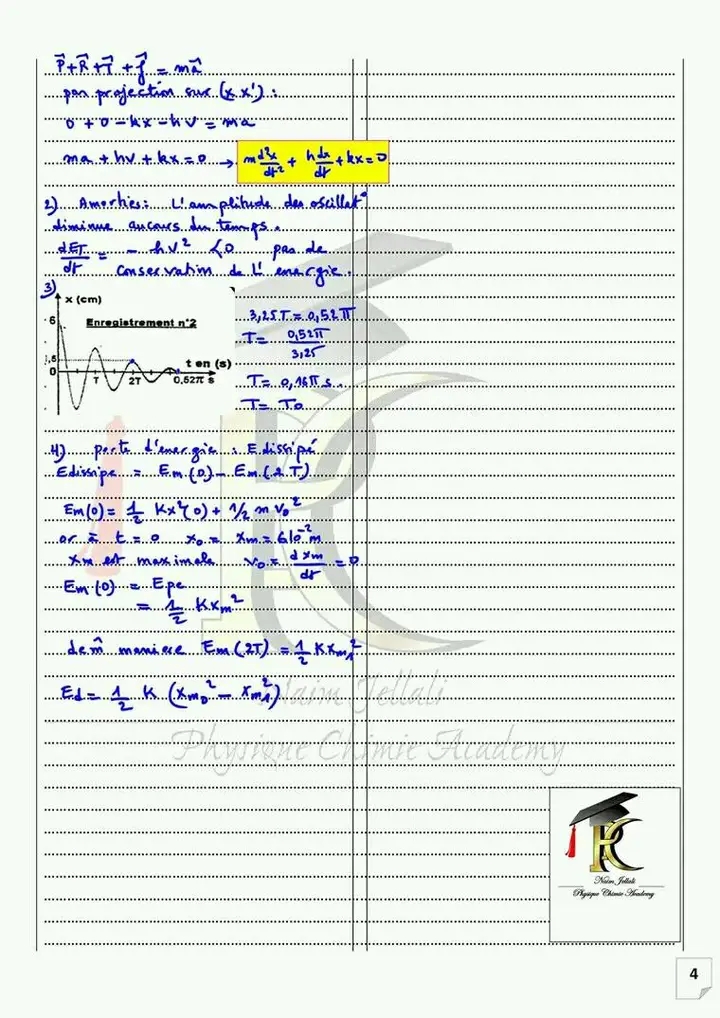 P⃗ + R⃗ + T⃗ + f⃗ = ma⃗
par projection sur (x x') :
0 + 0 - kx - hv = ma
ma + hv + kx = 0 → m d²x/dt² + h dx/dt + kx = 0
2) Amorties : L'amplitude des oscillat°
diminue au cours du temps.
dET/dt = - hv² < 0 pas de
conservation de L'énergie.
3)
x (cm)
6
Enregistrement n°2
3,25T = 0,52π
T = 0,52π/3,25
,5
t en (s)
0
T
2T
0,52π s
T = 0,16π s.
T = T0
4) perte d'energie : E dissipé
Edissipe = Em(0) - Em(2T)
Em(0) = 1/2 Kx²(0) + 1/2 m v0²
or à t = 0 x0 = xm = 6 10⁻² m
xm est maximale v0 = dxm/dt = 0
Em(0) = Epe
= 1/2 K xm²
de m̂ maniere Em(2T) = 1/2 K xm1²
Ed = 1/2 K (xm0² - xm1²)
Naim Jellali
Physique Chimie Academy
PC
Naim Jellali
Physique Chimie Academy
4